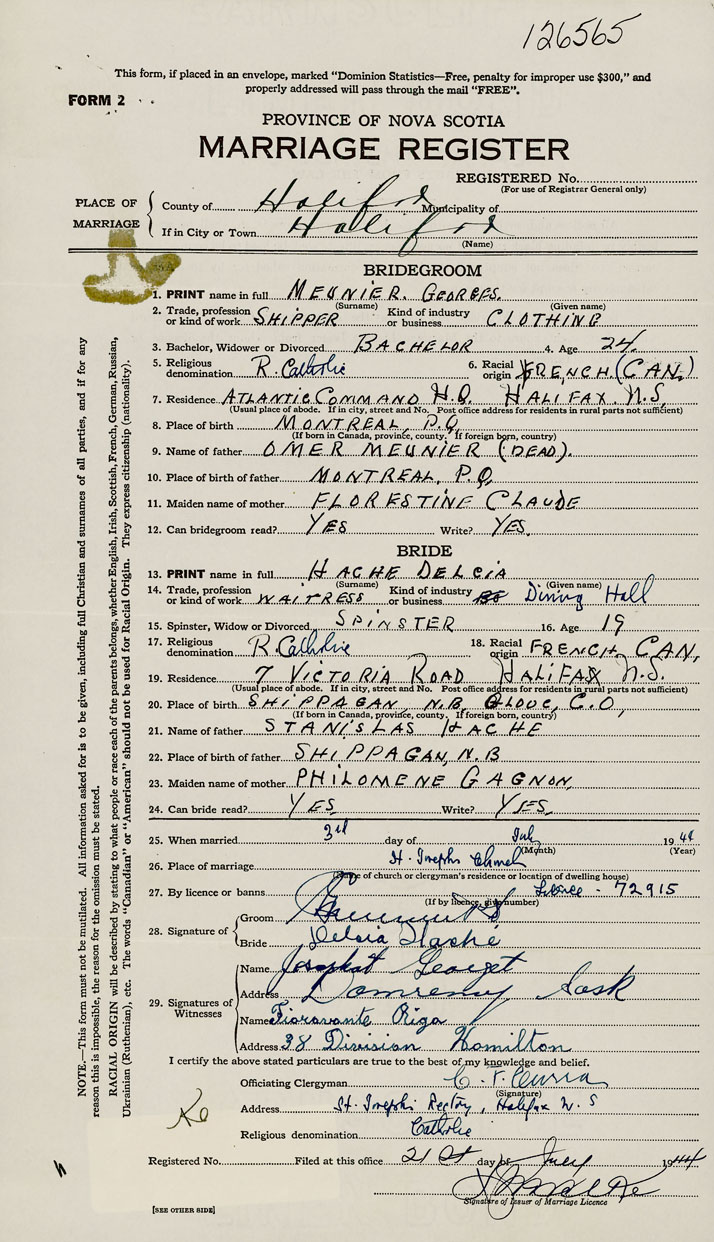 126565
This form, if placed in an envelope, marked "Dominion Statistics—Free, penalty for improper use $300," and
properly addressed will pass through the mail "FREE".
FORM 2
PROVINCE OF NOVA SCOTIA
MARRIAGE REGISTER
REGISTERED No.
(For use of Registrar General only)
PLACE OF MARRIAGE
County of Halifax Municipality of
If in City or Town Halifax
(Name)
BRIDEGROOM
1. PRINT name in full MEUNIER. GEORGES.
(Surname) (Given name)
2. Trade, profession or kind of work SHIPPER Kind of industry or business CLOTHING
3. Bachelor, Widower or Divorced BACHELOR 4. Age 24
5. Religious denomination R. Catholic 6. Racial origin FRENCH (CAN.)
7. Residence ATLANTIC COMMAND H.Q. HALIFAX N.S.
(Usual place of abode. If in city, street and No. Post office address for residents in rural parts not sufficient)
8. Place of birth MONTREAL, P.Q.
(If born in Canada, province, county. If foreign born, country)
9. Name of father OMER MEUNIER (DEAD).
10. Place of birth of father MONTREAL, P.Q.
11. Maiden name of mother FLORESTINE CLAUDE
12. Can bridegroom read? YES Write? YES.
BRIDE
13. PRINT name in full HACHE DELCIA
(Surname) (Given name)
14. Trade, profession or kind of work WAITRESS Kind of industry or business Dining Hall
15. Spinster, Widow or Divorced SPINSTER 16. Age 19
17. Religious denomination R. Catholic 18. Racial origin FRENCH CAN.
19. Residence 7 VICTORIA ROAD HALIFAX N.S.
(Usual place of abode. If in city, street and No. Post office address for residents in rural parts not sufficient)
20. Place of birth SHIPPAGAN, N.B. GLOUC, C.O,
(If born in Canada, province, county. If foreign born, country)
21. Name of father STANISLAS HACHE
22. Place of birth of father SHIPPAGAN, N.B
23. Maiden name of mother PHILOMENE GAGNON,
24. Can bride read? YES Write? YES.
25. When married 3rd day of July 1944
(Month) (Year)
26. Place of marriage St. Josephs Church
(Name of church or clergyman's residence or location of dwelling house)
27. By licence or banns Licence - 72915
(If by licence, give number)
28. Signature of
Groom
Bride Delcia Haché
29. Signatures of Witnesses
Name Josaphat
Address Domremy Sask
Name Fioravante Riga
Address 38 Division Hamilton
I certify the above stated particulars are true to the best of my knowledge and belief.
Officiating Clergyman C. F. Curran
(Signature)
Address St. Josephs Rectory, Halifax N.S
Religious denomination Catholic
Registered No. Filed at this office 21st day of July 1944
Signature of Issuer of Marriage Licence
[SEE OTHER SIDE]
NOTE.—This form must not be mutilated. All information asked for is to be given, including full Christian and surnames of all parties, and if for any
reason this is impossible, the reason for the omission must be stated.
RACIAL ORIGIN will be described by stating to what people or race each of the parents belongs, whether English, Irish, Scottish, French, German, Russian,
Ukrainian (Ruthenian), etc. The words "Canadian" or "American" should not be used for Racial Origin. They express citizenship (nationality).